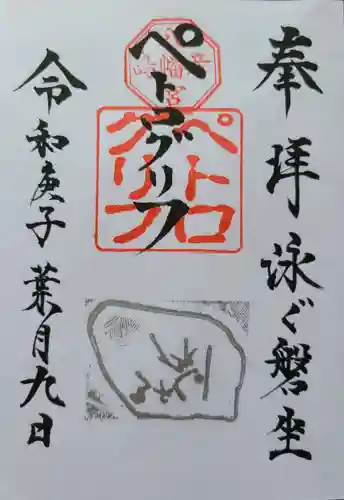 奉拝 泳ぐ磐坐
ペトログリフ
ペトログリフ
八幡宮
令和庚子 葉月九日